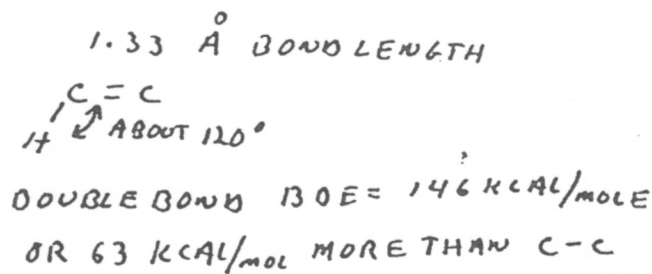 1.33 Å BOND LENGTH
C = C
H ABOUT 120°
?
DOUBLE BOND BDE = 146 KCAL/MOLE
OR 63 KCAL/MOL MORE THAN C-C